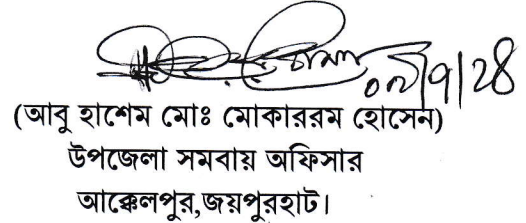 (আবু হাশেম মোঃ মোকাররম হোসেন)
উপজেলা সমবায় অফিসার
আক্কেলপুর,জয়পুরহাট।